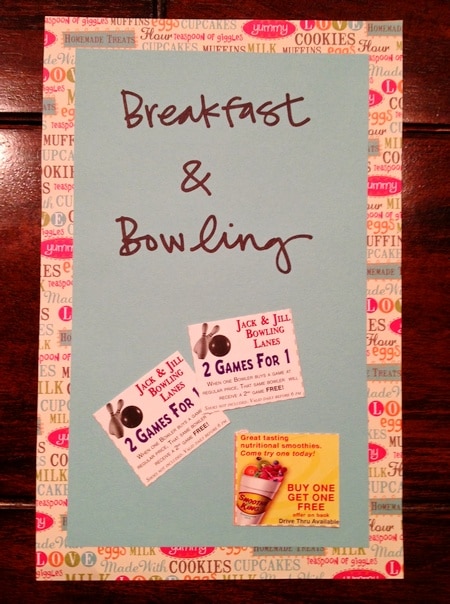 Breakfast
&
Bowling
JACK & JILL
BOWLING
LANES
2 GAMES FOR 1
WHEN ONE BOWLER BUYS A GAME AT
REGULAR PRICE, THAT SAME BOWLER WILL
RECEIVE A 2ND GAME FREE!
SHOES NOT INCLUDED. VALID DAILY BEFORE 6 PM
JACK & JILL
BOWLING
LANES
2 GAMES FOR
WHEN ONE BOWLER BUYS A GAME
REGULAR PRICE, THAT SAME BOWLER
RECEIVE A 2ND GAME FREE!
SHOES NOT INCLUDED. VALID DAILY BEFORE 6 PM
Great tasting
nutritional smoothies.
Come try one today!
SMOOTHIE
KING
BUY ONE
GET ONE
FREE
offer on back
Drive Thru Available
MUFFINS eggs
yummy
COOKIES
HOMEMADE TREATS
Hour
teaspoon of giggles
CUPCAKES
MILK
Made With
LOVE